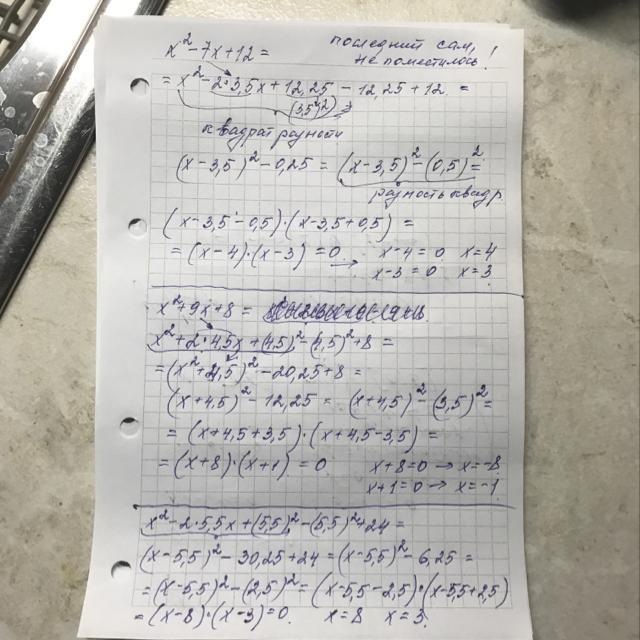 x² - 7x + 12 =
последний сам, не поместилось!
= x² - 2·3,5x + 12,25 - 12,25 + 12 =
(3,5)²
квадрат разности
(x - 3,5)² - 0,25 = (x - 3,5)² - (0,5)² =
разность квадр.
(x - 3,5 - 0,5)·(x - 3,5 + 0,5) =
= (x - 4)·(x - 3) = 0 → x - 4 = 0 x = 4
x - 3 = 0 x = 3
x² + 9x + 8 =
x² + 2·4,5x + (4,5)² - (4,5)² + 8 =
= (x² + 4,5)² - 20,25 + 8 =
(x + 4,5)² - 12,25 = (x + 4,5)² - (3,5)² =
= (x + 4,5 + 3,5)·(x + 4,5 - 3,5) =
= (x + 8)·(x + 1) = 0 x + 8 = 0 → x = -8
x + 1 = 0 → x = -1
x² - 2·5,5x + (5,5)² - (5,5)² + 24 =
(x - 5,5)² - 30,25 + 24 = (x - 5,5)² - 6,25 =
= (x - 5,5)² - (2,5)² = (x - 5,5 - 2,5)·(x - 5,5 + 2,5)
= (x - 8)·(x - 3) = 0. x = 8 x = 3.